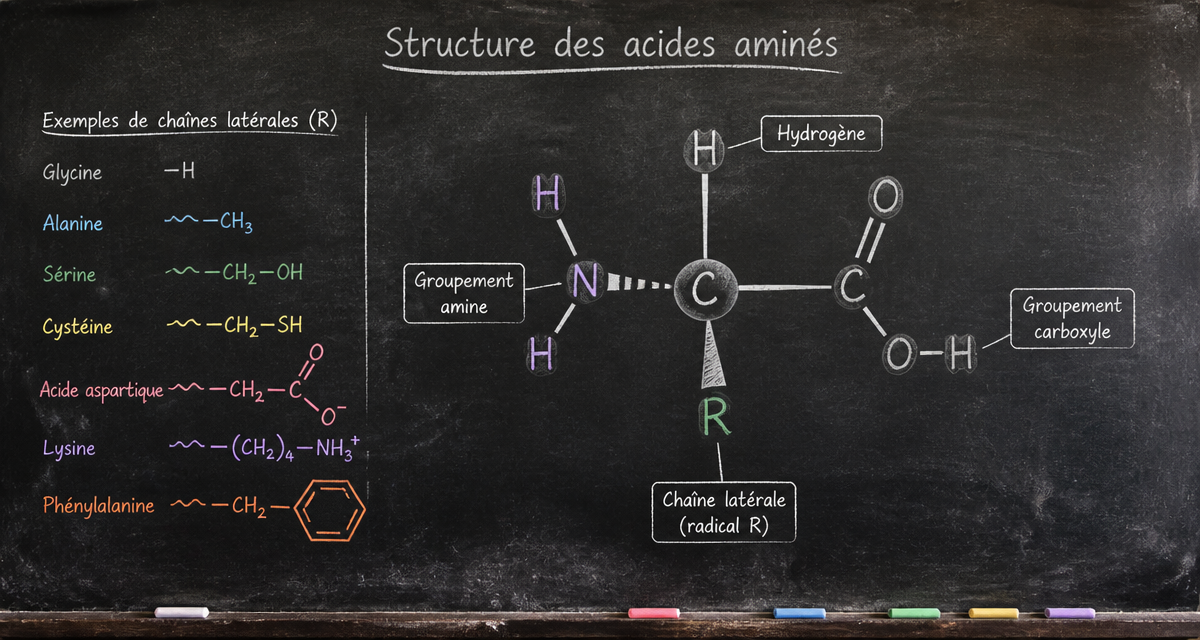 Structure des acides aminés
Exemples de chaînes latérales (R)
Glycine –H
Alanine –CH₃
Sérine –CH₂–OH
Cystéine –CH₂–SH
Acide aspartique –CH₂–C
O
O⁻
Lysine –(CH₂)₄–NH₃⁺
Phénylalanine –CH₂–
H
Hydrogène
H
O
Groupement
amine
N
C
C
H
O–H
Groupement
carboxyle
R
Chaîne latérale
(radical R)